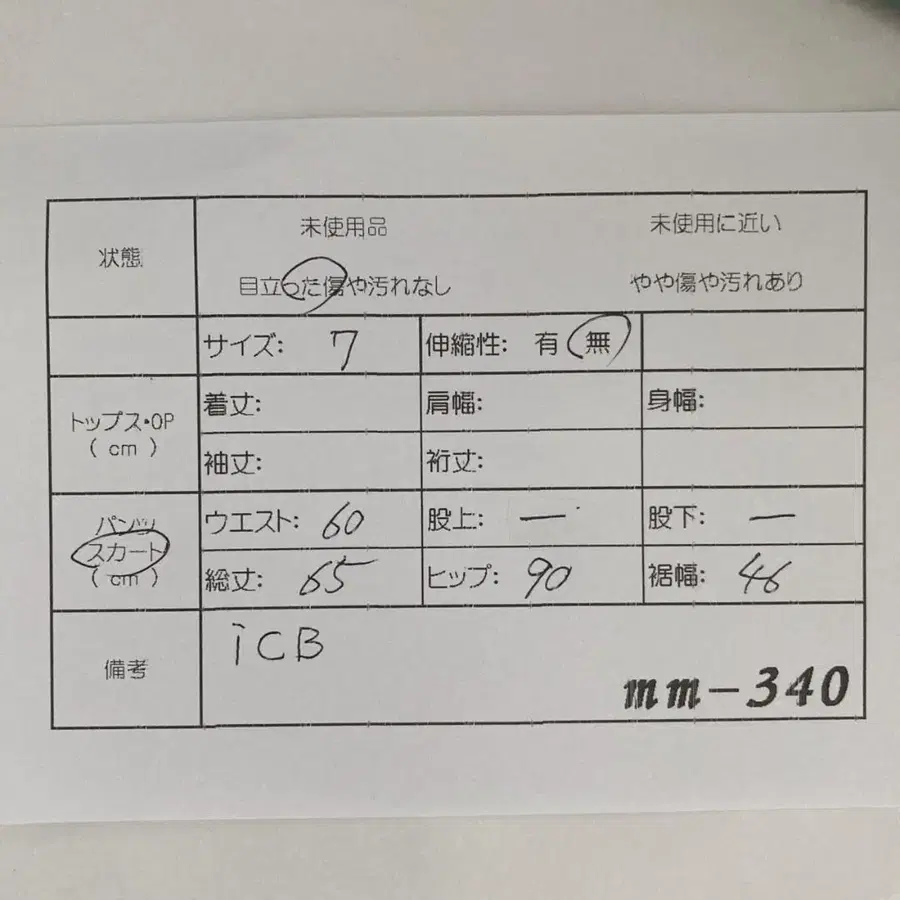 状態
未使用品 未使用に近い
目立った傷や汚れなし やや傷や汚れあり
サイズ: 7 伸縮性: 有 無
トップス・OP
( cm )
着丈: 肩幅: 身幅:
袖丈: 裄丈:
パンツ
スカート
( cm )
ウエスト: 60 股上: ― 股下: ―
総丈: 65 ヒップ: 90 裾幅: 46
備考
iCB
mm-340